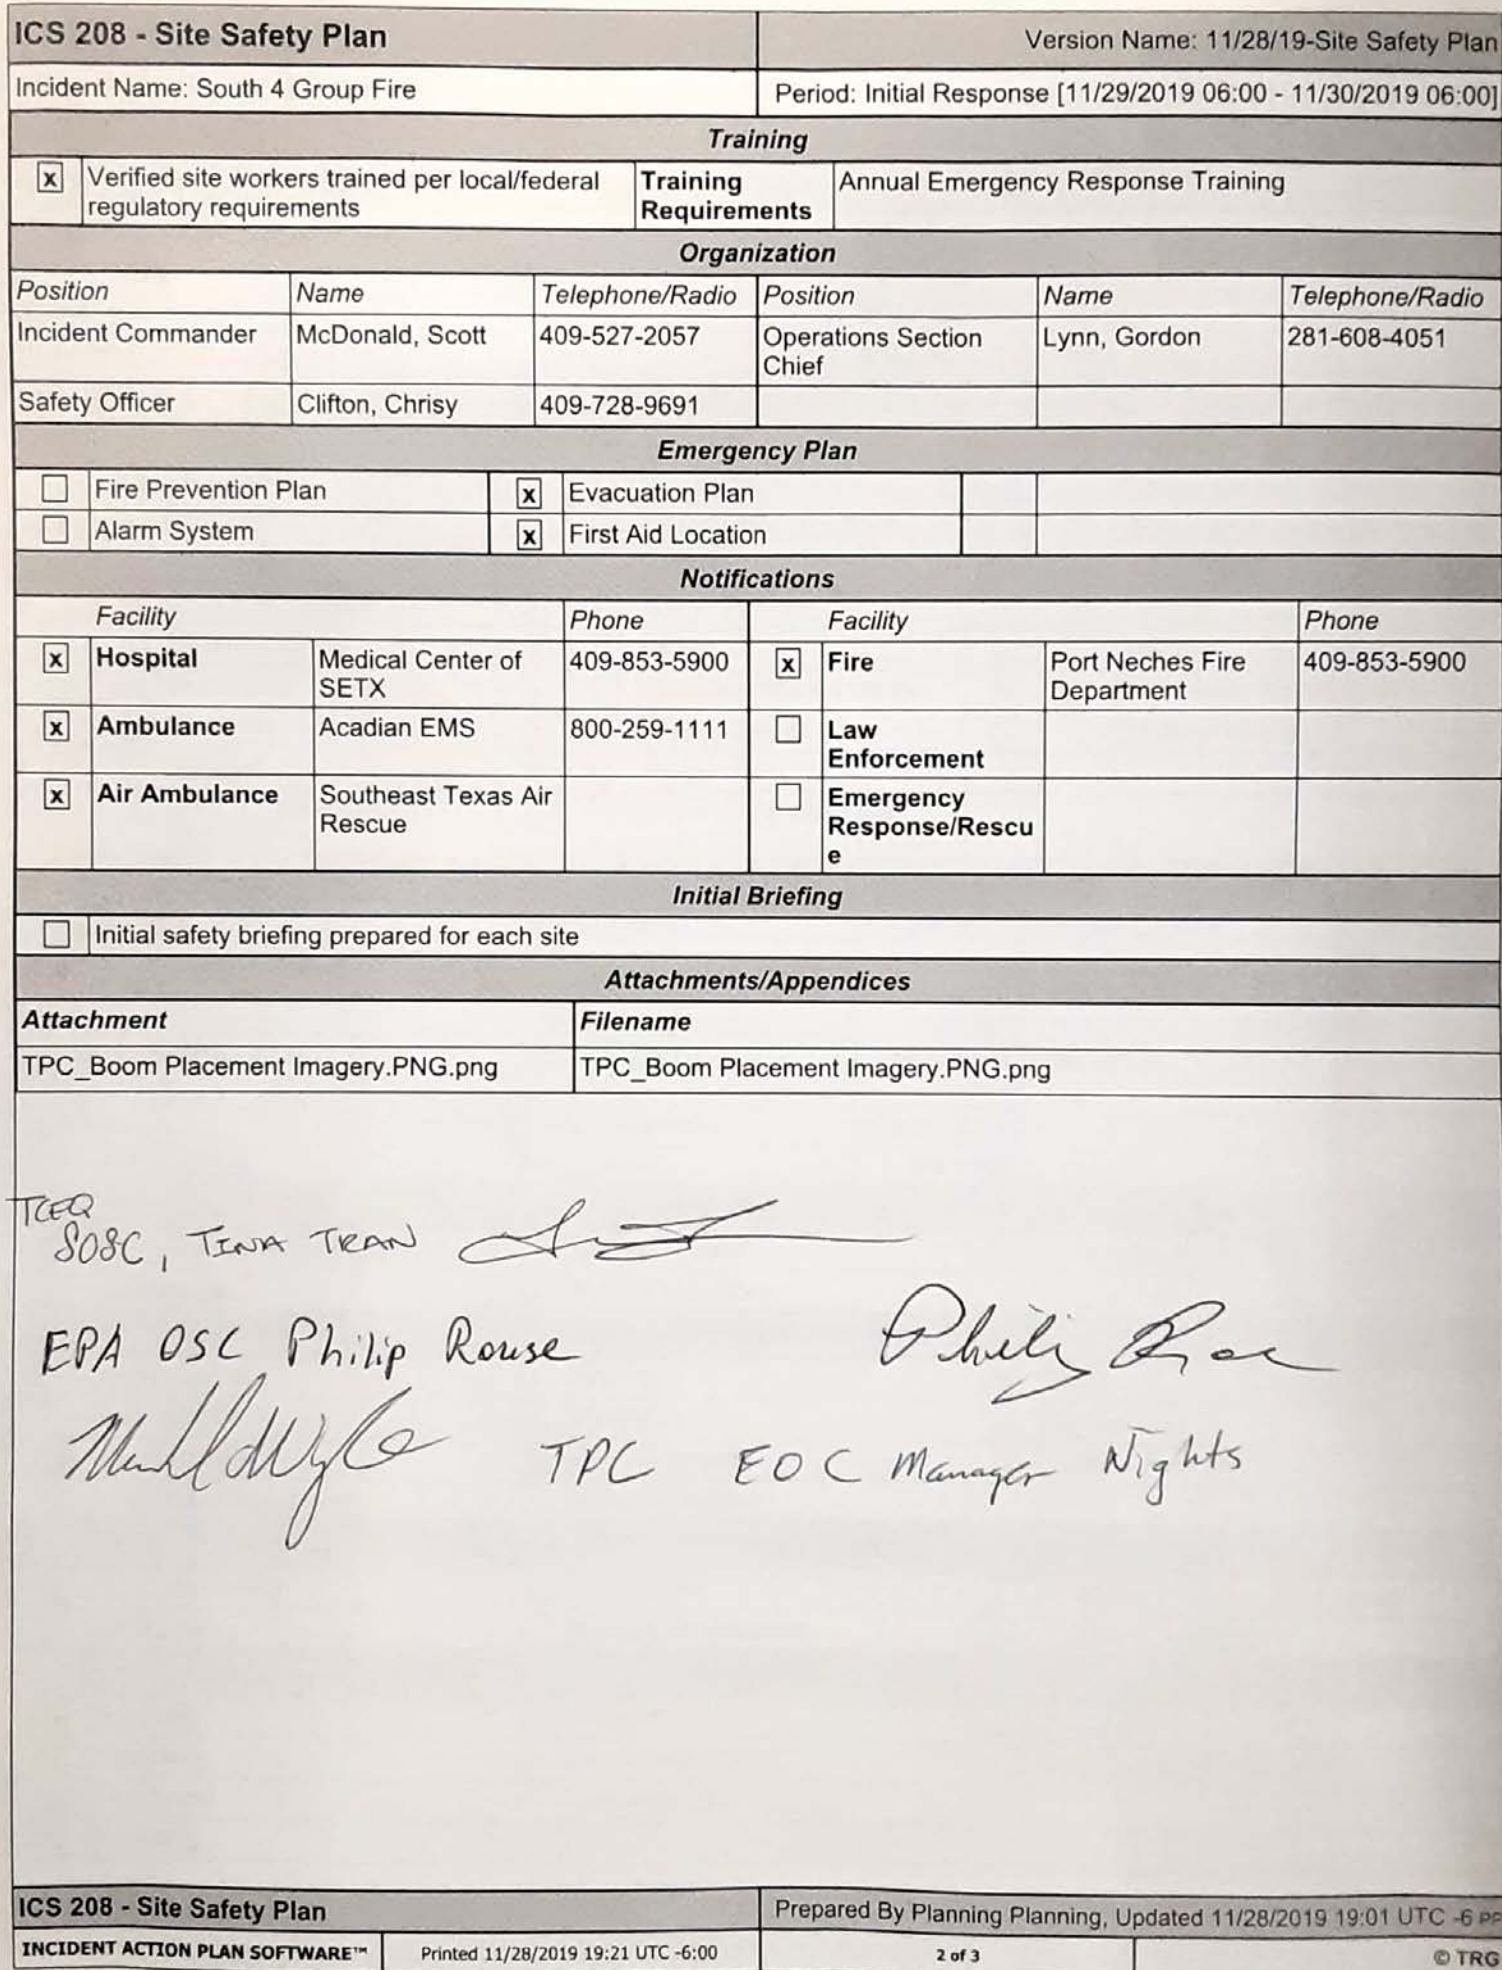 ICS 208 - Site Safety Plan
Version Name: 11/28/19-Site Safety Plan
Incident Name: South 4 Group Fire
Period: Initial Response [11/29/2019 06:00 - 11/30/2019 06:00]
Training
x Verified site workers trained per local/federal
regulatory requirements
Training
Requirements
Annual Emergency Response Training
Organization
Position Name Telephone/Radio Position Name Telephone/Radio
Incident Commander McDonald, Scott 409-527-2057 Operations Section Lynn, Gordon 281-608-4051
Chief
Safety Officer Clifton, Chrisy 409-728-9691
Emergency Plan
Fire Prevention Plan x Evacuation Plan
Alarm System x First Aid Location
Notifications
Facility Phone Facility Phone
x Hospital Medical Center of 409-853-5900 x Fire Port Neches Fire 409-853-5900
SETX Department
x Ambulance Acadian EMS 800-259-1111 Law
Enforcement
x Air Ambulance Southeast Texas Air Emergency
Rescue Response/Rescu
e
Initial Briefing
Initial safety briefing prepared for each site
Attachments/Appendices
Attachment Filename
TPC_Boom Placement Imagery.PNG.png TPC_Boom Placement Imagery.PNG.png
TCEQ
SOSC, TINA TRAN
EPA OSC Philip Rouse
TPC EOC Manager Nights
ICS 208 - Site Safety Plan
Prepared By Planning Planning, Updated 11/28/2019 19:01 UTC -6
INCIDENT ACTION PLAN SOFTWARE™ Printed 11/28/2019 19:21 UTC -6:00 2 of 3 © TRG